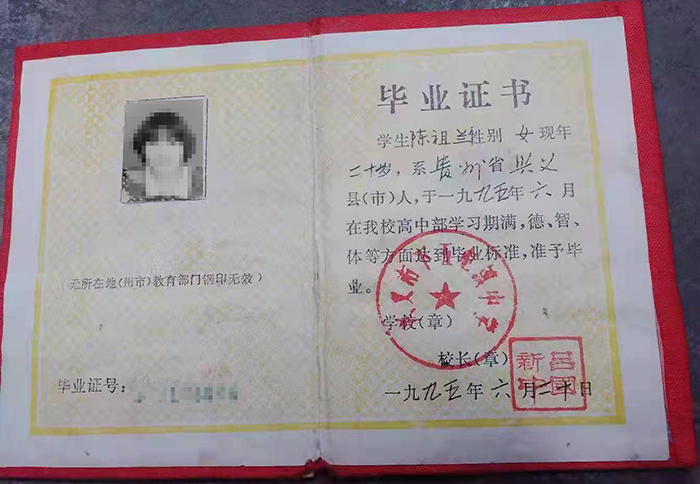 (无所在地(州市)教育部门钢印无效)
毕业证号:
毕业证书
学生陈祖兰性别 女 现年
二十岁, 系贵州省 兴义
县(市)人, 于一九九五年 六 月
在我校高中部学习期满, 德、智、
体等方面达到毕业标准, 准予毕
业。
学校(章)
校长(章)
一九九五年 六 月二十日
吕国
新